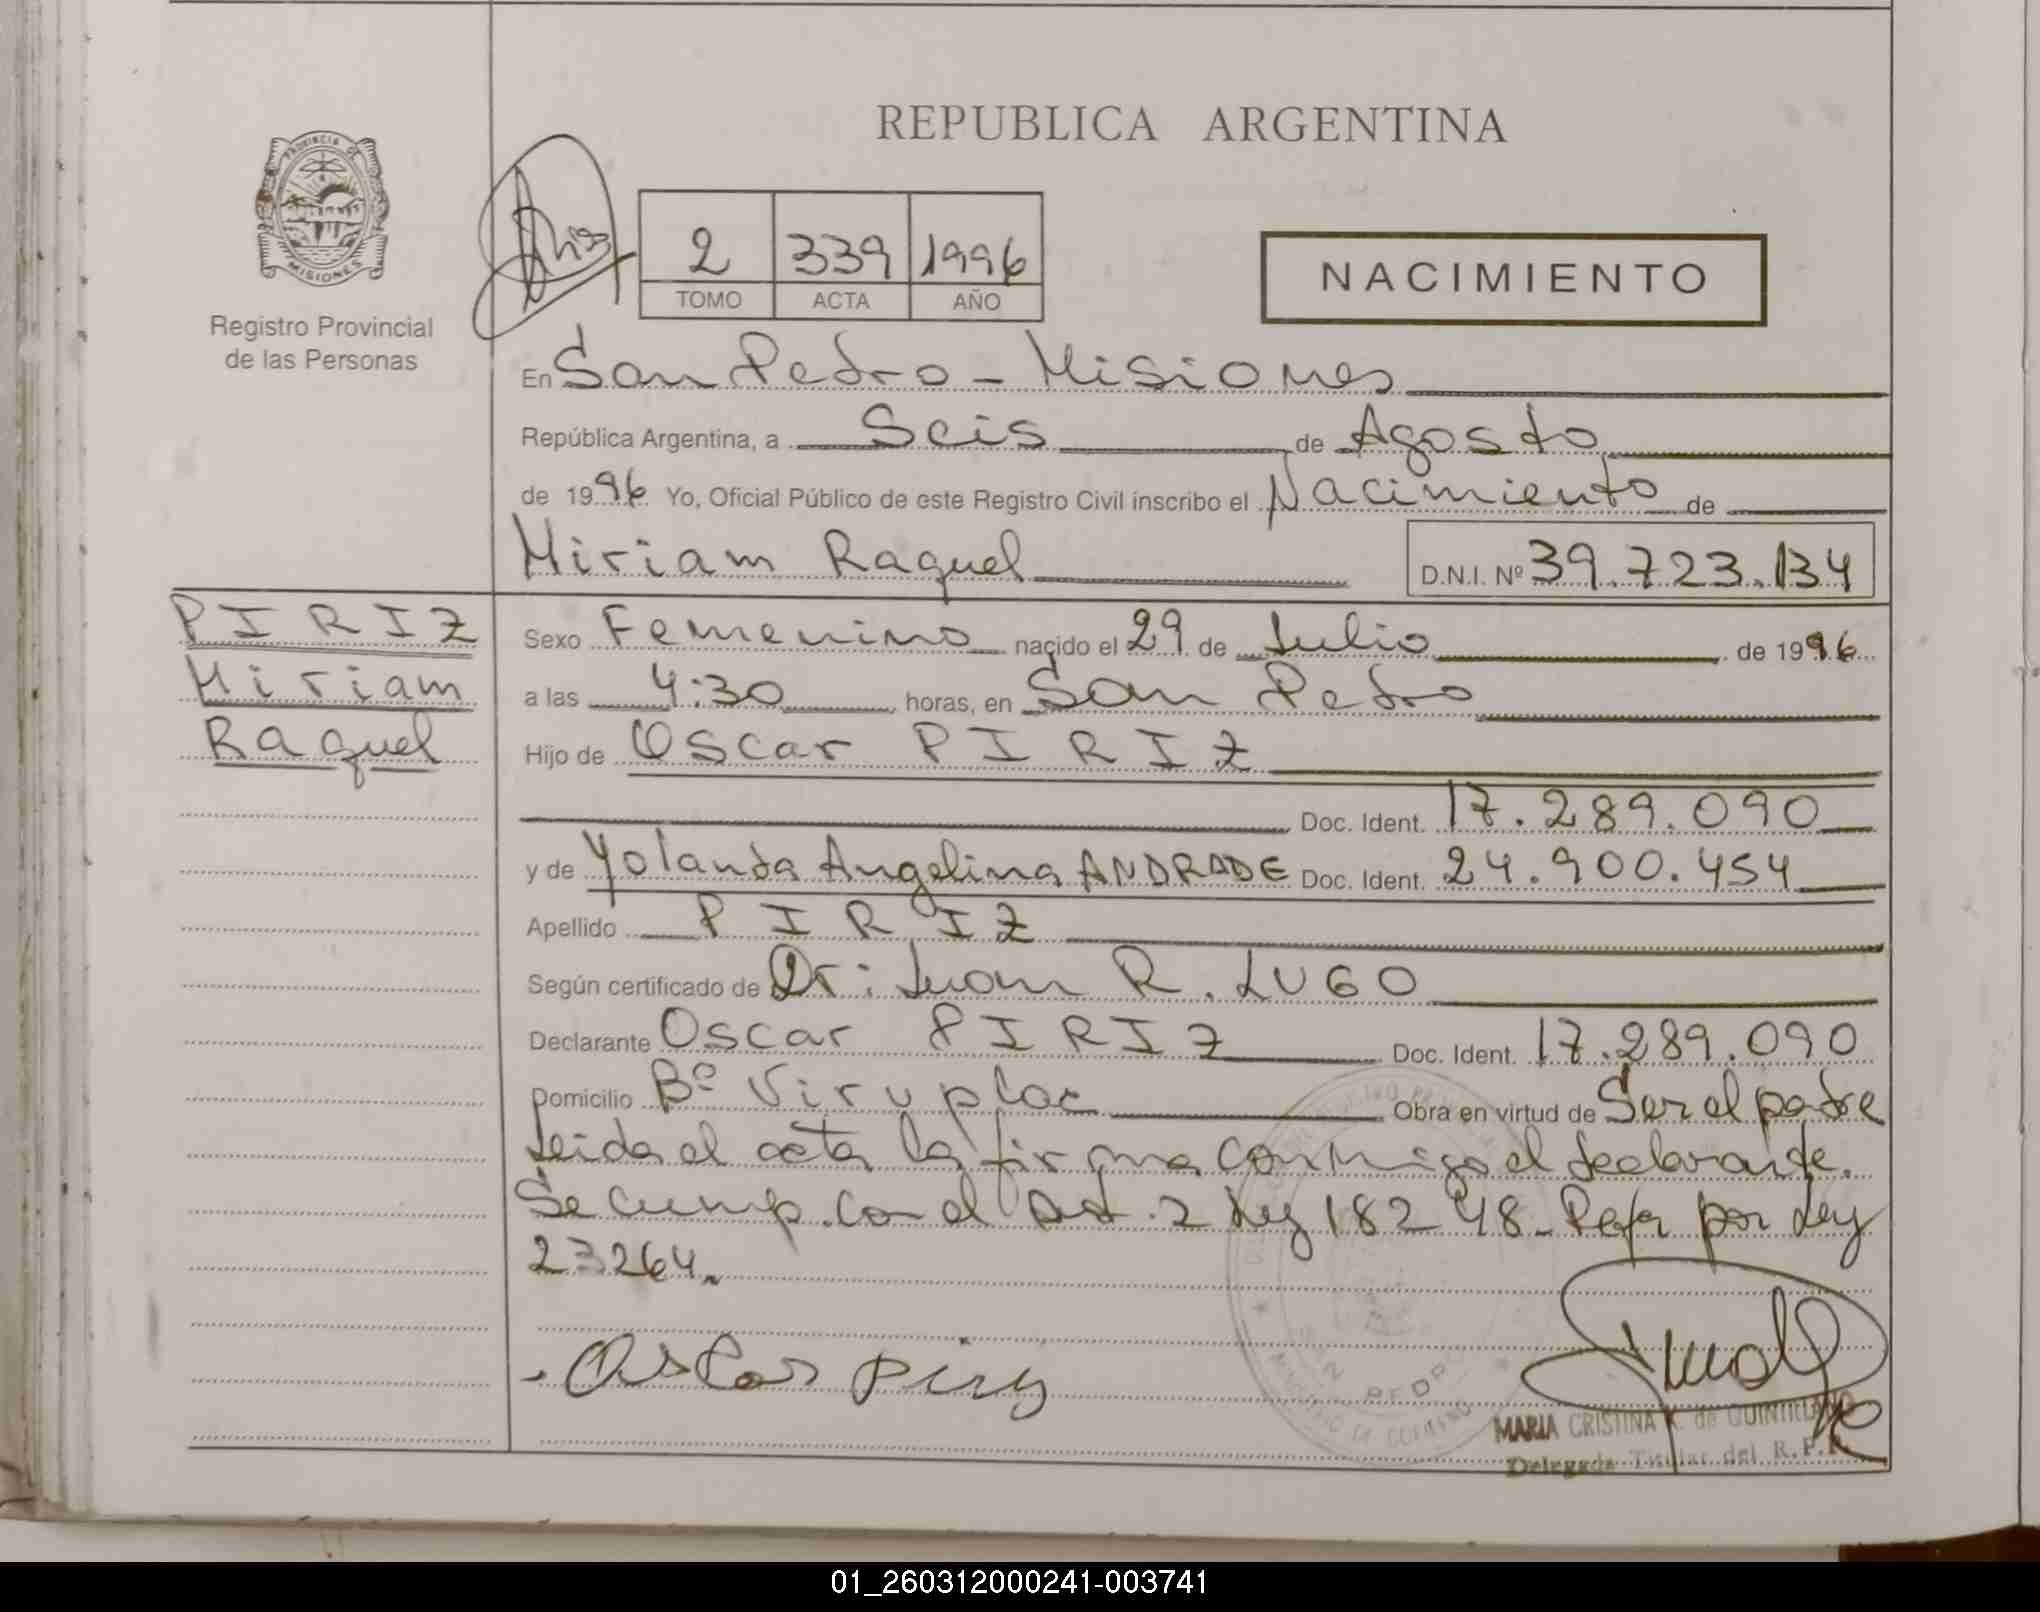 REPUBLICA ARGENTINA
PROVINCIA DE
MISIONES
Registro Provincial
de las Personas
2 339 1996
TOMO ACTA AÑO
NACIMIENTO
En San Pedro - Misiones
República Argentina, a Seis de Agosto
de 1996 Yo, Oficial Público de este Registro Civil inscribo el Nacimiento de
Miriam Raquel D.N.I. Nº 39.723.134
PIRIZ
Miriam
Raquel
Sexo Femenino nacido el 29 de Julio de 1996
a las 4:30 horas, en San Pedro
Hijo de Oscar PIRIZ
Doc. Ident. 17.289.090
y de Yolanda Angelina ANDRADE Doc. Ident. 24.900.454
Apellido PIRIZ
Según certificado de Dr: Juan R. LUGO
Declarante Oscar PIRIZ Doc. Ident. 17.289.090
Domicilio Bº Viruplac Obra en virtud de Ser el padre
Leida el acta la firma conmigo el declarante.
Se cump. con el Art. 2 Ley 18248- por Ley
23264.
Oscar Piriz
MARIA CRISTINA K. de QUINTILLANO
Delegada Titular del R.P.P.
01_260312000241-003741